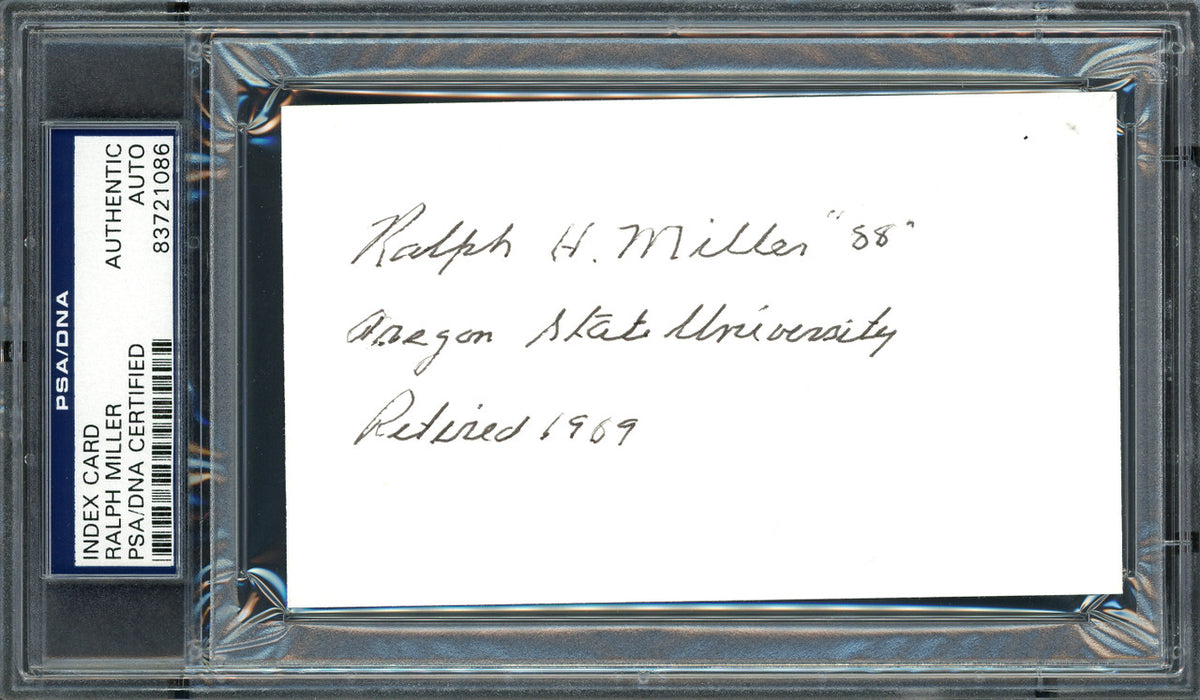 PSA/DNA
INDEX CARD
RALPH MILLER
PSA/DNA CERTIFIED
AUTHENTIC
AUTO
83721086
Ralph H. Miller "88"
Oregon State University
Retired 1989